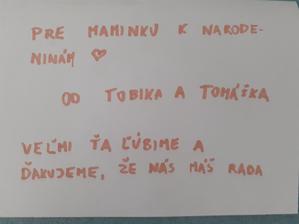 PRE MAMINKU K NARODE-
NINÁM ♥
OD TOBIKA A TOMÁŠKA
VEĽMI ŤA ĽÚBIME A
ĎAKUJEME, ŽE NÁS MÁŠ RADA